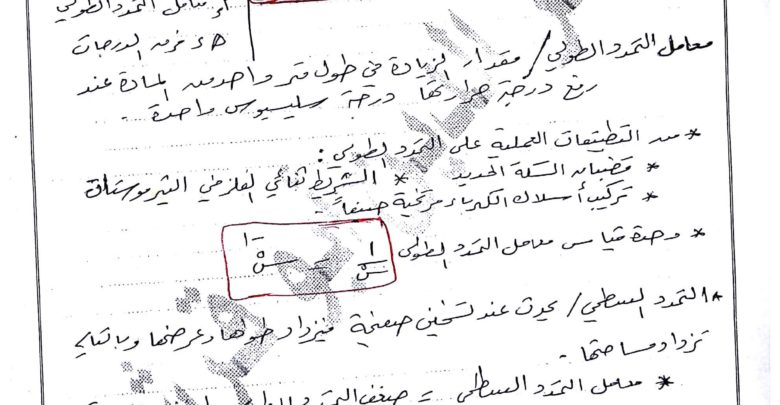 أ ء معامل التمدد الطولي
Δد ء فرق الدرجات
معامل التمدد الطولي / مقدار الزيادة في طول متر واحد من المادة عند
رفع درجة حرارتها درجة سليسيوس واحدة .
* من التطبيقات العملية على التمدد الطولي :
* قضبان السكة الحديد * الشريط ثنائي الفلز في الثيرموستات
* تركيب أسلاك الكهرباء مرتخية صيفاً .
* وحدة قياس معامل التمدد الطولي ١/سْ = سْ-١
التمدد السطحي / يحدث عند تسخين صفيحة فيزداد طولها وعرضها وبالتالي
تزداد مساحتها .
* معامل التمدد السطحي = ضعف التمدد